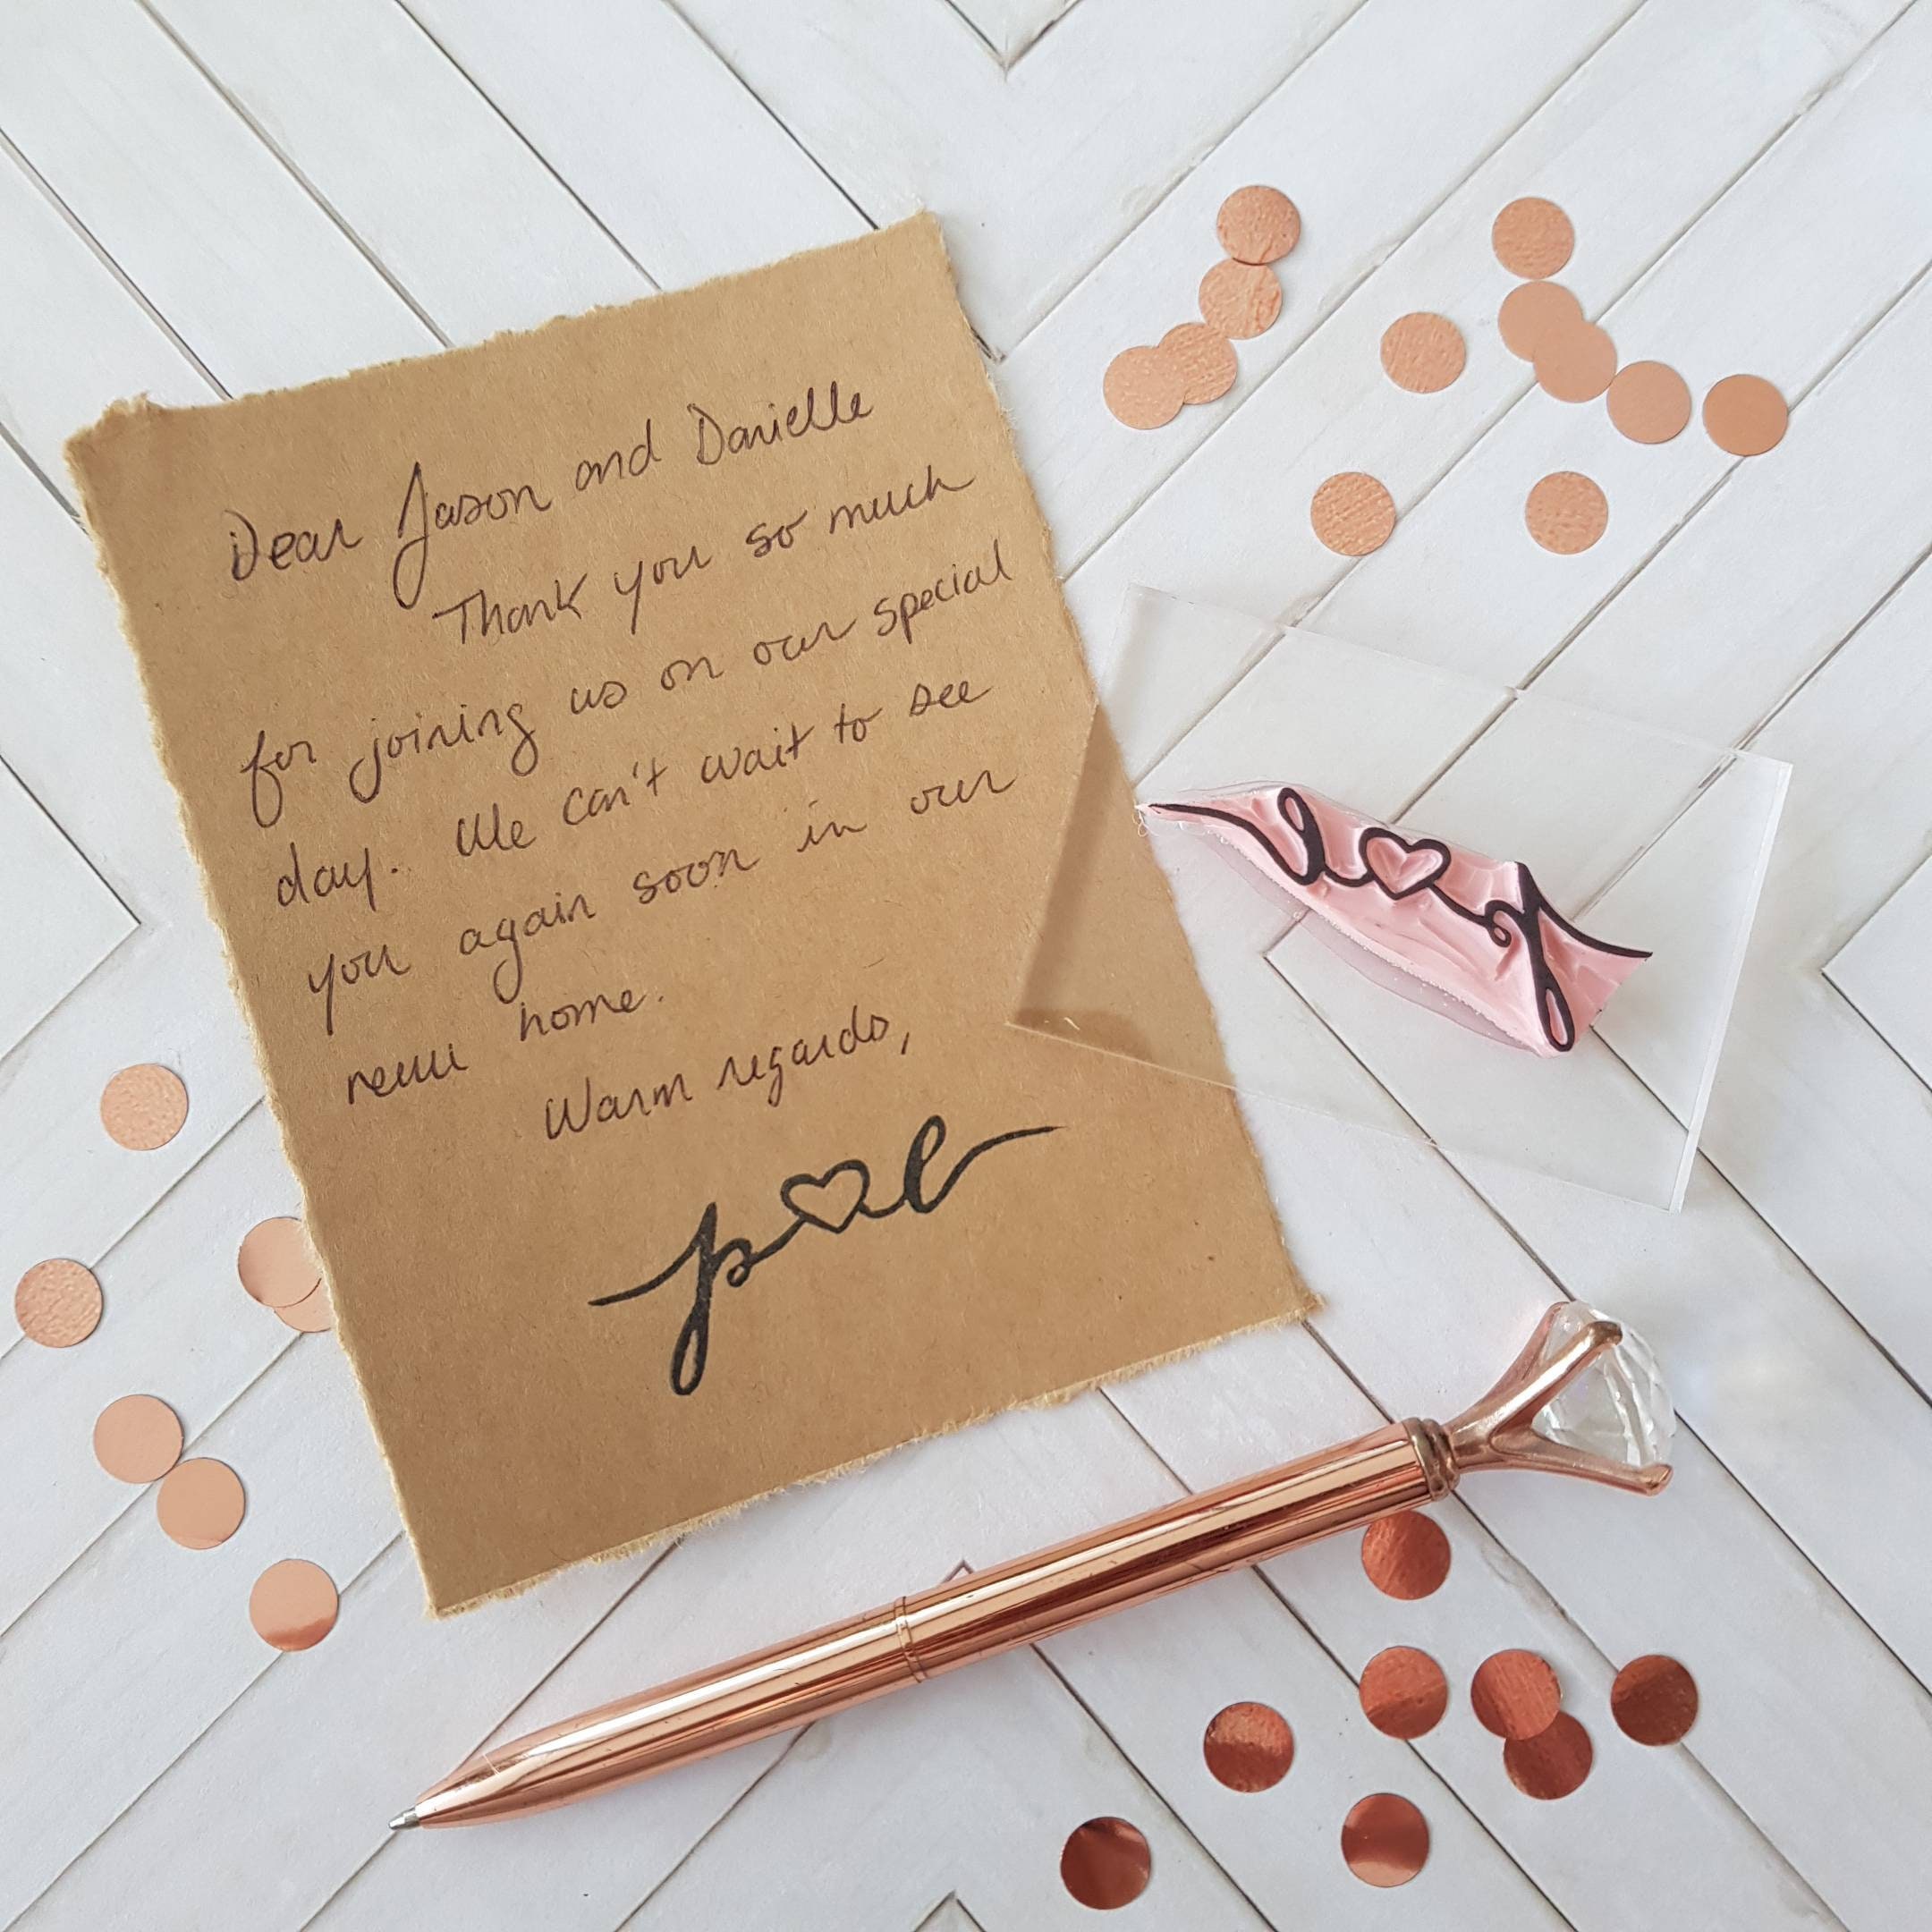 Dear Jason and Danielle
Thank you so much
for joining us on our special
day. We can't wait to see
you again soon in our
new home.
Warm regards,
p♡l